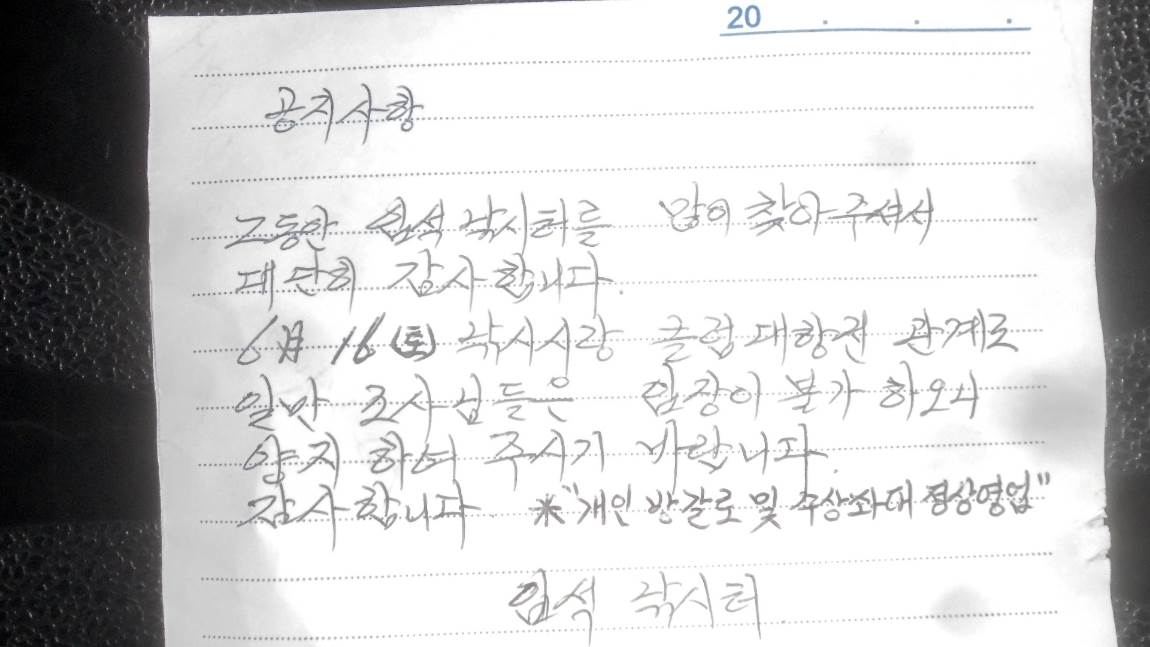 20 . . .
공지사항
그동안 입석낚시터를 많이 찾아주셔서
대단히 감사합니다.
6月 16(土) 낚시사랑 클럽대항전 관계로
일반 조사님들은 입장이 불가 하오니
양지 하여 주시기 바랍니다.
감사합니다. ※"개인 방갈로 및 수상좌대 정상영업"
입석 낚시터